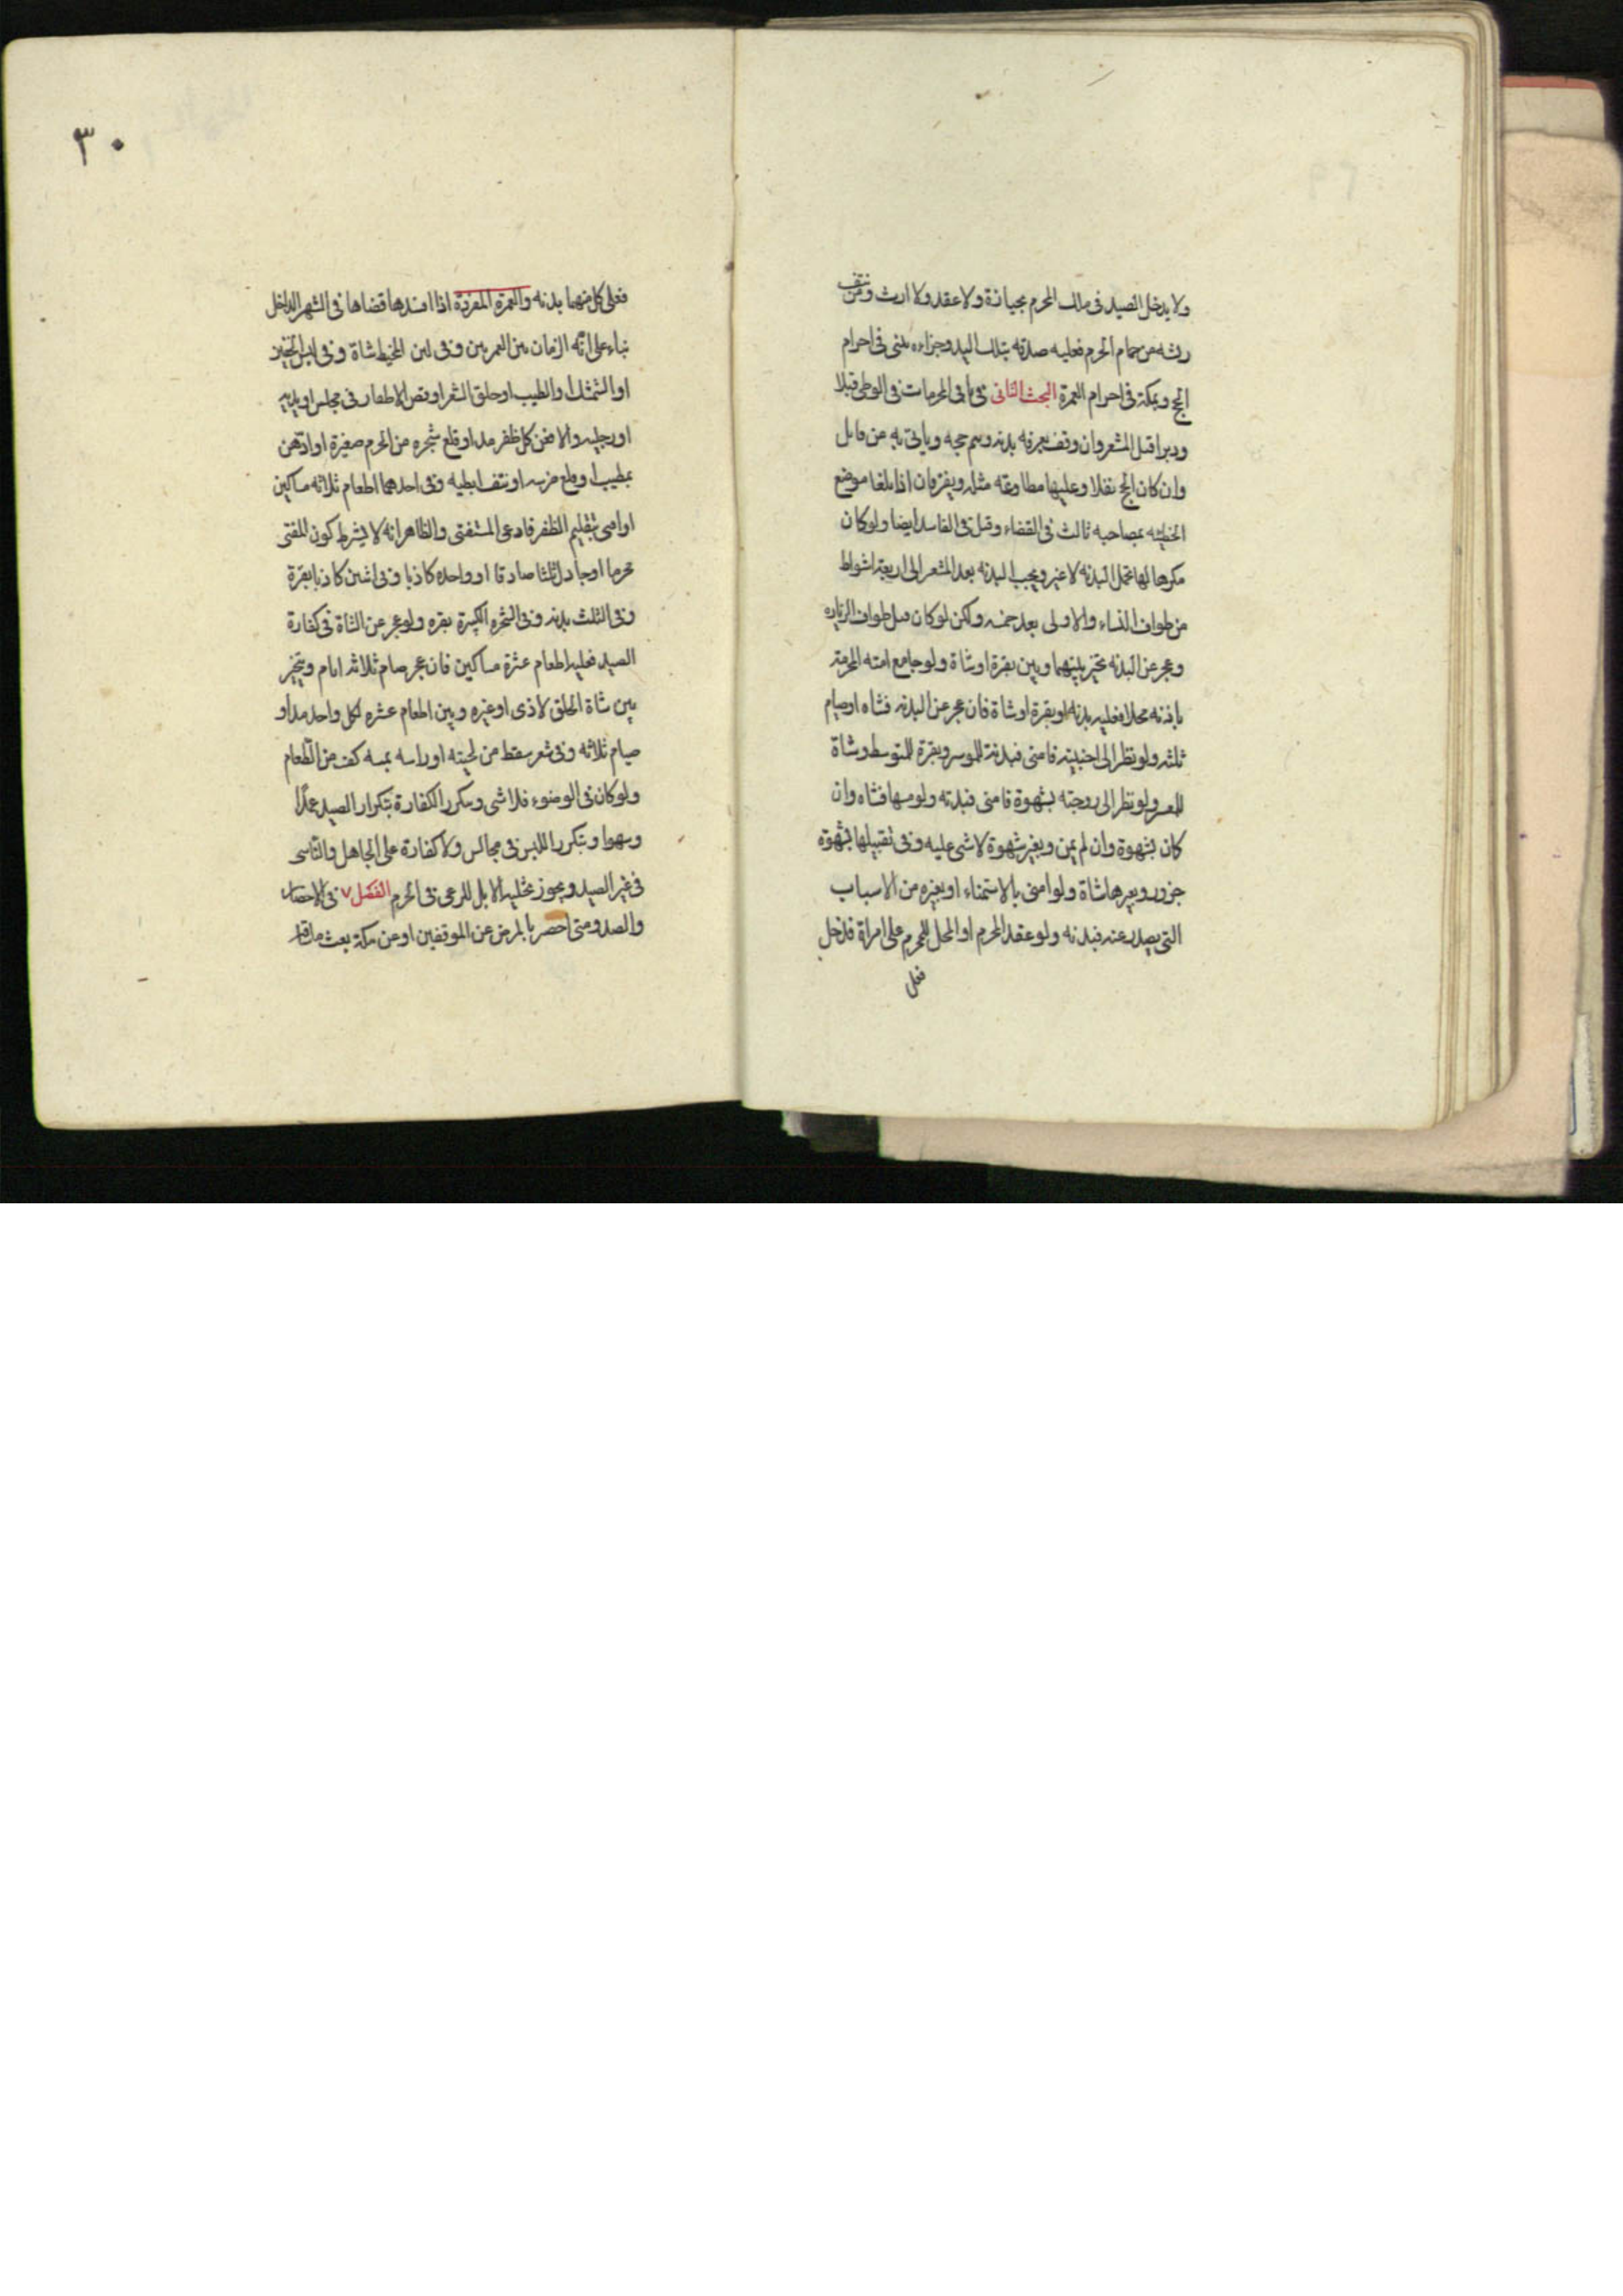 ولا يدخل الصيد فى ملك المحرم بحيازة ولا عقد ولا ارث ومن نتف
ريشه من حمام الحرم فعليه صدقه بتلك اليد وجزاءه بمنى فى احرام
الحج وبمكة فى احرام العمرة البحث الثانى فى باقى المحرمات فى الوطى قبلا
ودبرا قبل المشعر وان وقف بعرفه بدنه ويتم حجه وياتى به من قابل
وان كان الحج نفلا وعليها مطاوعه مثله ويفترقان اذا بلغا موضع
الخطيئه بمصاحبه ثالث فى القضاء وقيل فى الفاسد ايضا ولو كان
مكرها لها تحمل البدنه لا غير ويجب البدنه بعد المشعر الى اربعة اشواط
من طواف النساء والاولى بعد خمسه ولكن لو كان قبل طواف الزياره
وعجز عن البدنه تخير بينهما وبين بقرة او شاة ولو جامع امته المحرمة
باذنه محلا فعليه بدنه او بقرة او شاة فان عجز عن البدنه فشاه او صيام
ثلثه ولو نظر الى اجنبية فامنى فبدنة للموسر وبقرة للمتوسط وشاة
للمعسر ولو نظر الى زوجته بشهوة فامنى فبدنه ولو مسها فشاه وان
كان بشهوة وان لم يمن وبغير شهوة لا شى عليه وفى تقبيلها بشهوة
جزور وبغيرها شاة ولو امنى بالاستمناء او بغيره من الاسباب
التى يصدر عنه فبدنه ولو عقد المحرم او المحل للمحرم على امراة فدخل
فعلى
٣٠
فعلى كل منهما بدنه والعمرة المفردة اذا افسدها قضاها فى الشهر الداخل
بناء على انه الزمان بين العمرتين وفى لبس المخيط شاة وفى لبس الخفين
او الشمشك او الطيب او حلق الشعر او قص الاظفار فى مجلس او يديه
او رجليه والا فعن كل ظفر مد او قلع شجره من الحرم صغيرة او ادهن
بمطيب او قلع ضرسه او نتف ابطيه وفى احدهما اطعام ثلاثه مساكين
او افتى بتقليم الظفر فادمى المستفتى والظاهر انه لا يشترط كون المفتى
محرما او جادل ثلثا صادقا او واحده كاذبا وفى اثنين كاذبا بقرة
وفى الثلث بدنه وفى الشجره الكبيرة بقره ولو عجز عن الشاة فى كفارة
الصيد فعليه اطعام عشرة مساكين فان عجز صام ثلاثه ايام ويتخير
بين شاة الحلق لاذى او غيره وبين اطعام عشره لكل واحد مد او
صيام ثلاثه وفى شعر سقط من لحيته او راسه بمسه كف من الطعام
ولو كان فى الوضوء فلا شى ويتكرر الكفارة بتكرار الصيد عمدا
وسهوا وبتكرر اللبس فى مجالس ولا كفارة على الجاهل والناسى
فى غير الصيد ويجوز تخلية الابل للرعى فى الحرم الفصل ٧ فى الاحصار
والصد ومتى احصر بالمرض عن الموقفين او عن مكة بعث ما ساق